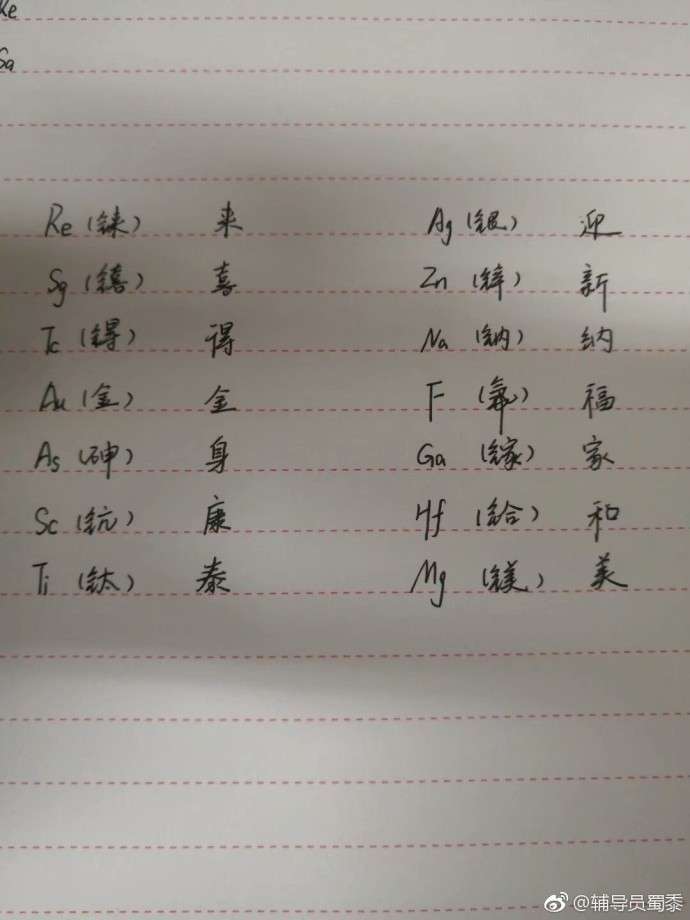 Re
Sg
Re (铼) 来
Sg (𨭎) 喜
Tc (锝) 得
Au (金) 金
As (砷) 身
Sc (钪) 康
Ti (钛) 泰
Ag (银) 迎
Zn (锌) 新
Na (钠) 纳
F (氟) 福
Ga (镓) 家
Hf (铪) 和
Mg (镁) 美
@辅导员蜀黍